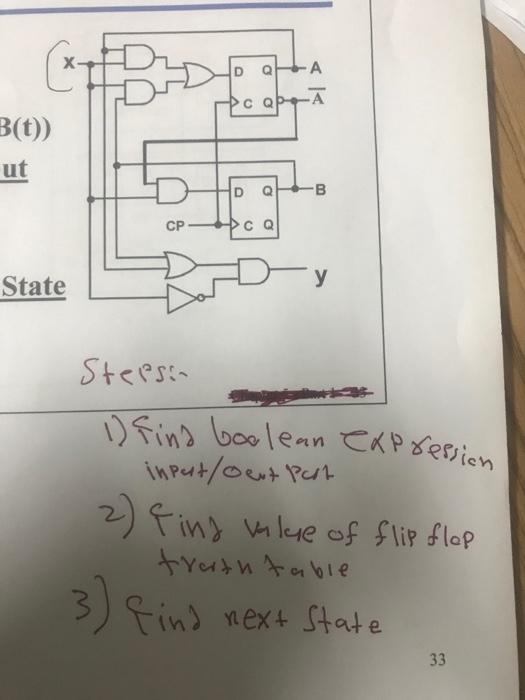 x
D Q A
C Q A̅
B(t))
ut
D Q B
CP C Q
State
y
Steps:-
1) Find boolean Expression
input/output
2) find value of flip flop
truth table
3) find next state
33